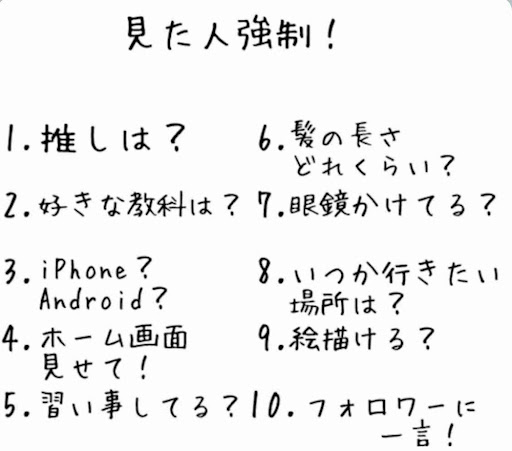 見た人強制！
1.推しは？
2.好きな教科は？
3.iPhone？
Android？
4.ホーム画面
見せて！
5.習い事してる？
6.髪の長さ
どれくらい？
7.眼鏡かけてる？
8.いつか行きたい
場所は？
9.絵描ける？
10.フォロワーに
一言！